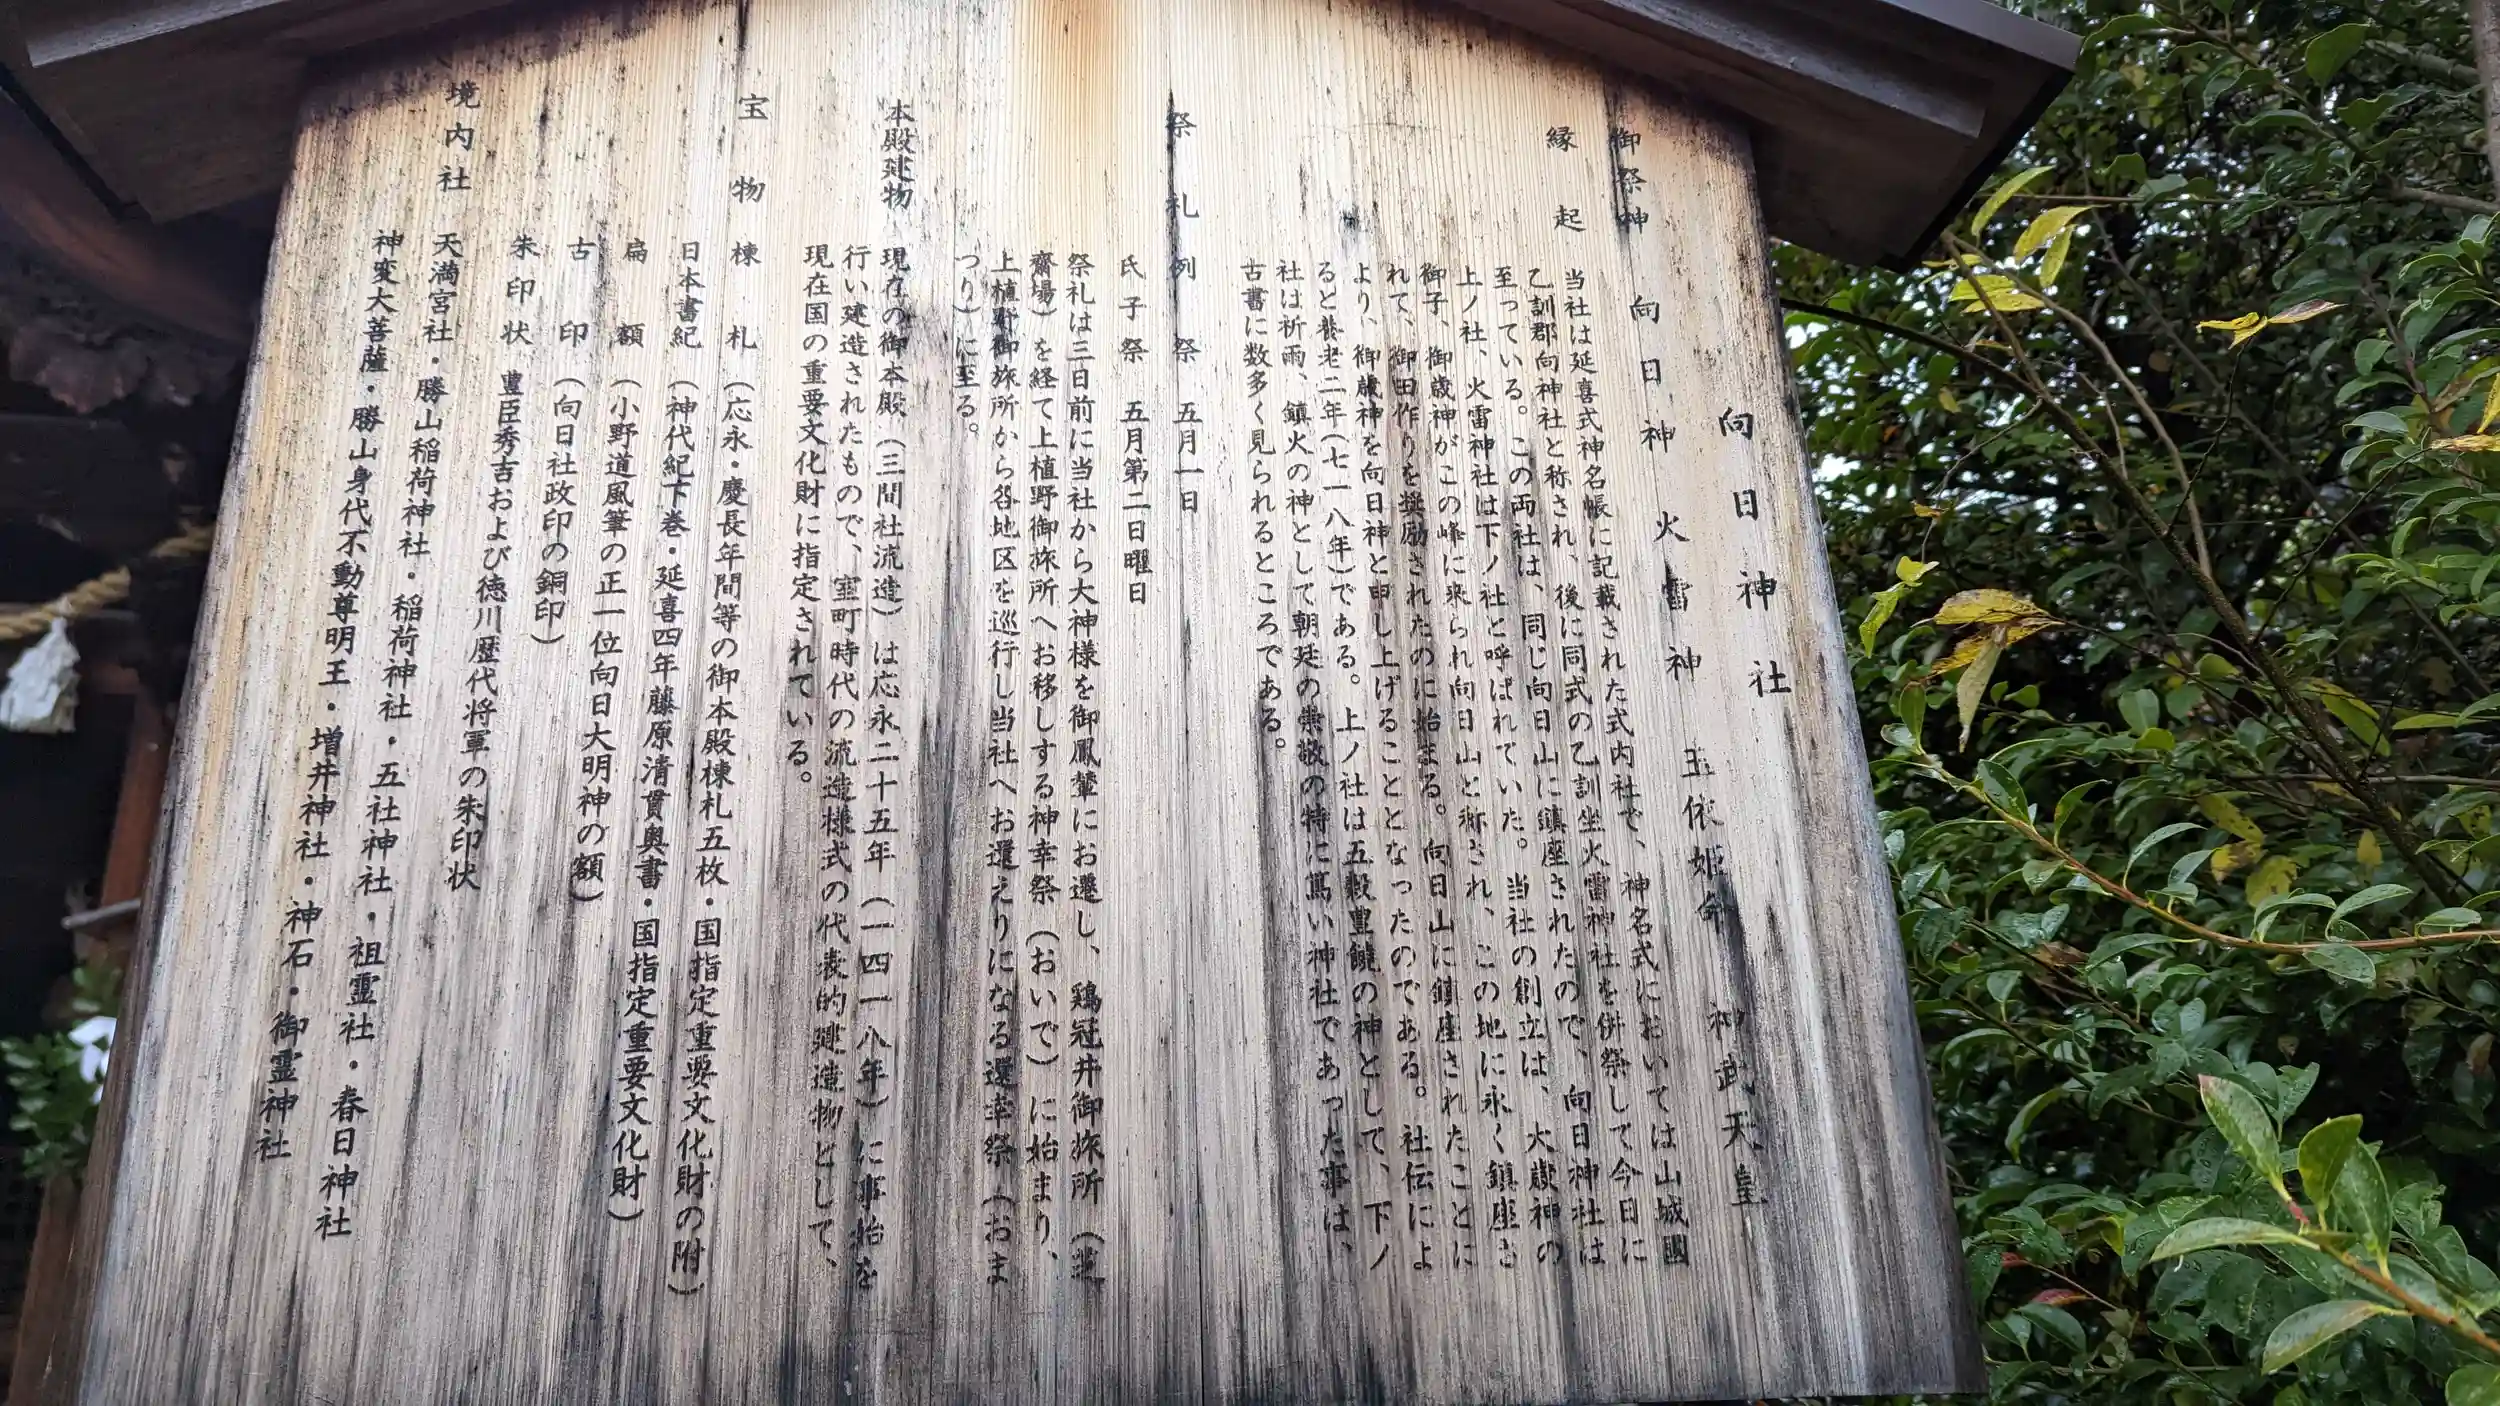 向日神社
御祭神 向日神 火雷神 玉依姫命 神武天皇
縁起
当社は延喜式神名帳に記載された式内社で、神名式においては山城國
乙訓郡向神社と称され、後に同式の乙訓坐火雷神社を併祭して今日に
至っている。この両社は、同じ向日山に鎮座されたので、向日神社は
上ノ社、火雷神社は下ノ社と呼ばれていた。当社の創立は、大歳神の
御子、御歳神がこの峰に来られ向日山と称され、この地に永く鎮座さ
れて、御田作りを奨励されたのに始まる。向日山に鎮座されたことに
より、御歳神を向日神と申し上げることとなったのである。社伝によ
ると養老二年(七一八年)である。上ノ社は五穀豊饒の神として、下ノ
社は祈雨、鎮火の神として朝廷の崇敬の特に篤い神社であった事は、
古書に数多く見られるところである。
祭礼 例祭 五月一日
氏子祭 五月第二日曜日
祭礼は三日前に当社から大神様を御鳳輦にお遷し、鶏冠井御旅所(荒
齋場)を経て上植野御旅所へお移しする神幸祭(おいで)に始まり、
上植野御旅所から各地区を巡行し当社へお還えりになる還幸祭(おま
つり)に至る。
本殿建物
現在の御本殿(三間社流造)は応永二十五年(一四一八年)に事始を
行い建造されたもので、室町時代の流造様式の代表的建造物として、
現在国の重要文化財に指定されている。
宝物 棟札 (応永・慶長年間等の御本殿棟札五枚・国指定重要文化財の附)
日本書紀 (神代紀下巻・延喜四年藤原清貫奥書・国指定重要文化財)
扁額 (小野道風筆の正一位向日大明神の額)
古印 (向日社政印の銅印)
朱印状 豊臣秀吉および徳川歴代将軍の朱印状
境内社 天満宮社・勝山稲荷神社・稲荷神社・五社神社・祖霊社・春日神社
神変大菩薩・勝山身代不動尊明王・増井神社・神石・御霊神社